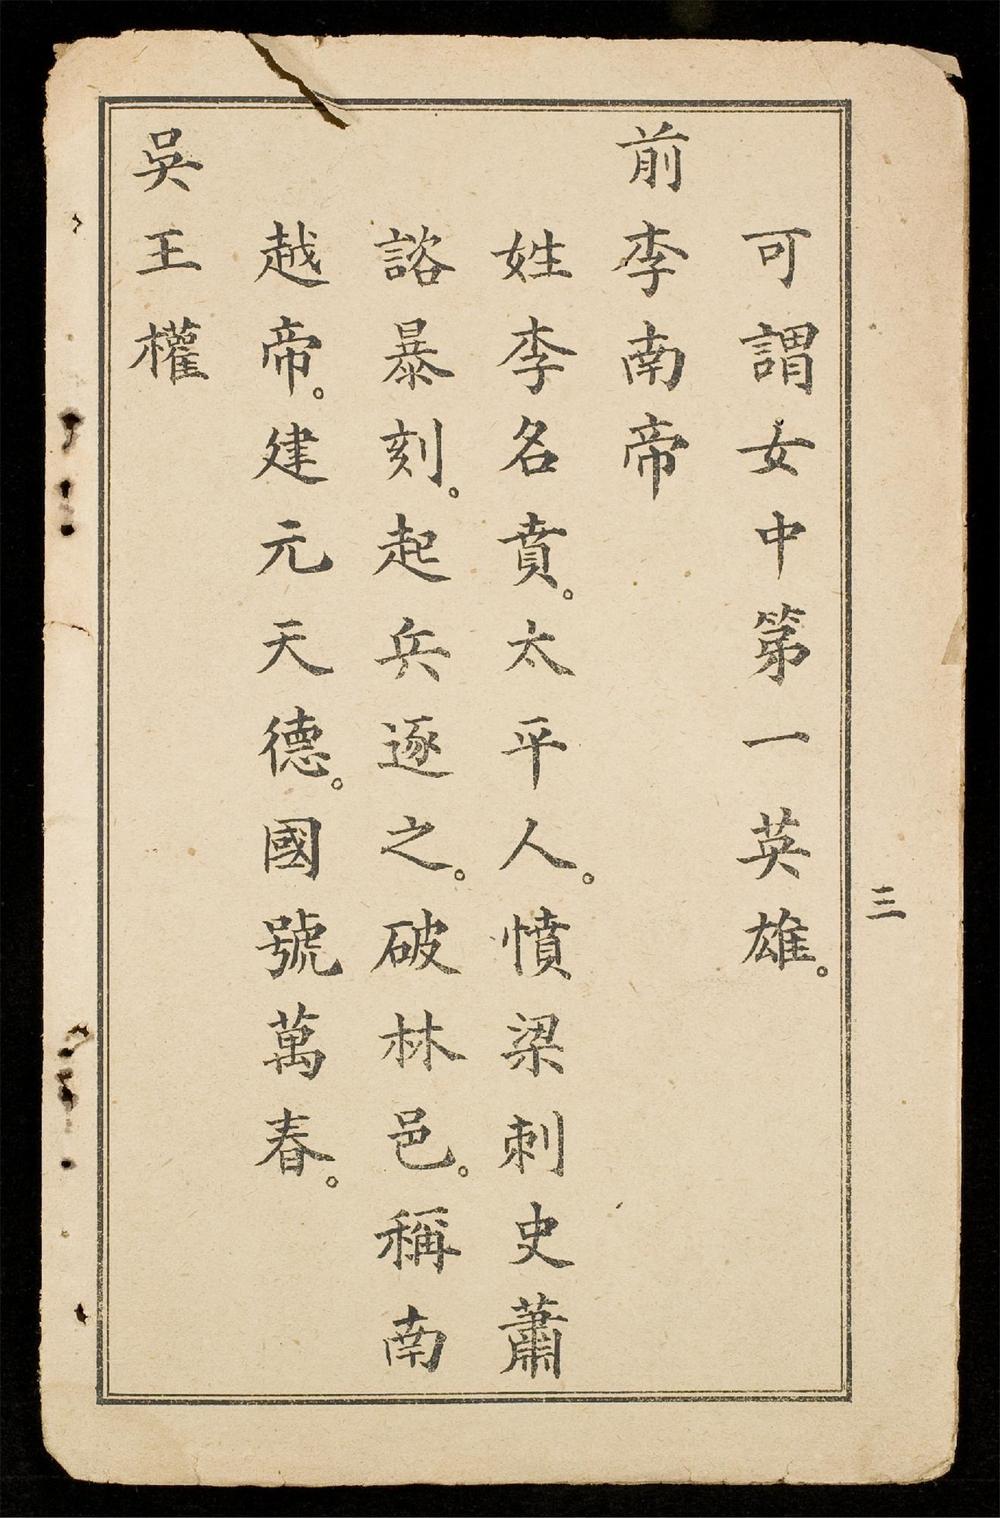 可謂女中第一英雄。
前李南帝
姓李名賁。太平人。憤梁刺史蕭
諮暴刻。起兵逐之。破林邑。稱南
越帝。建元天德。國號萬春。
吳王權
三